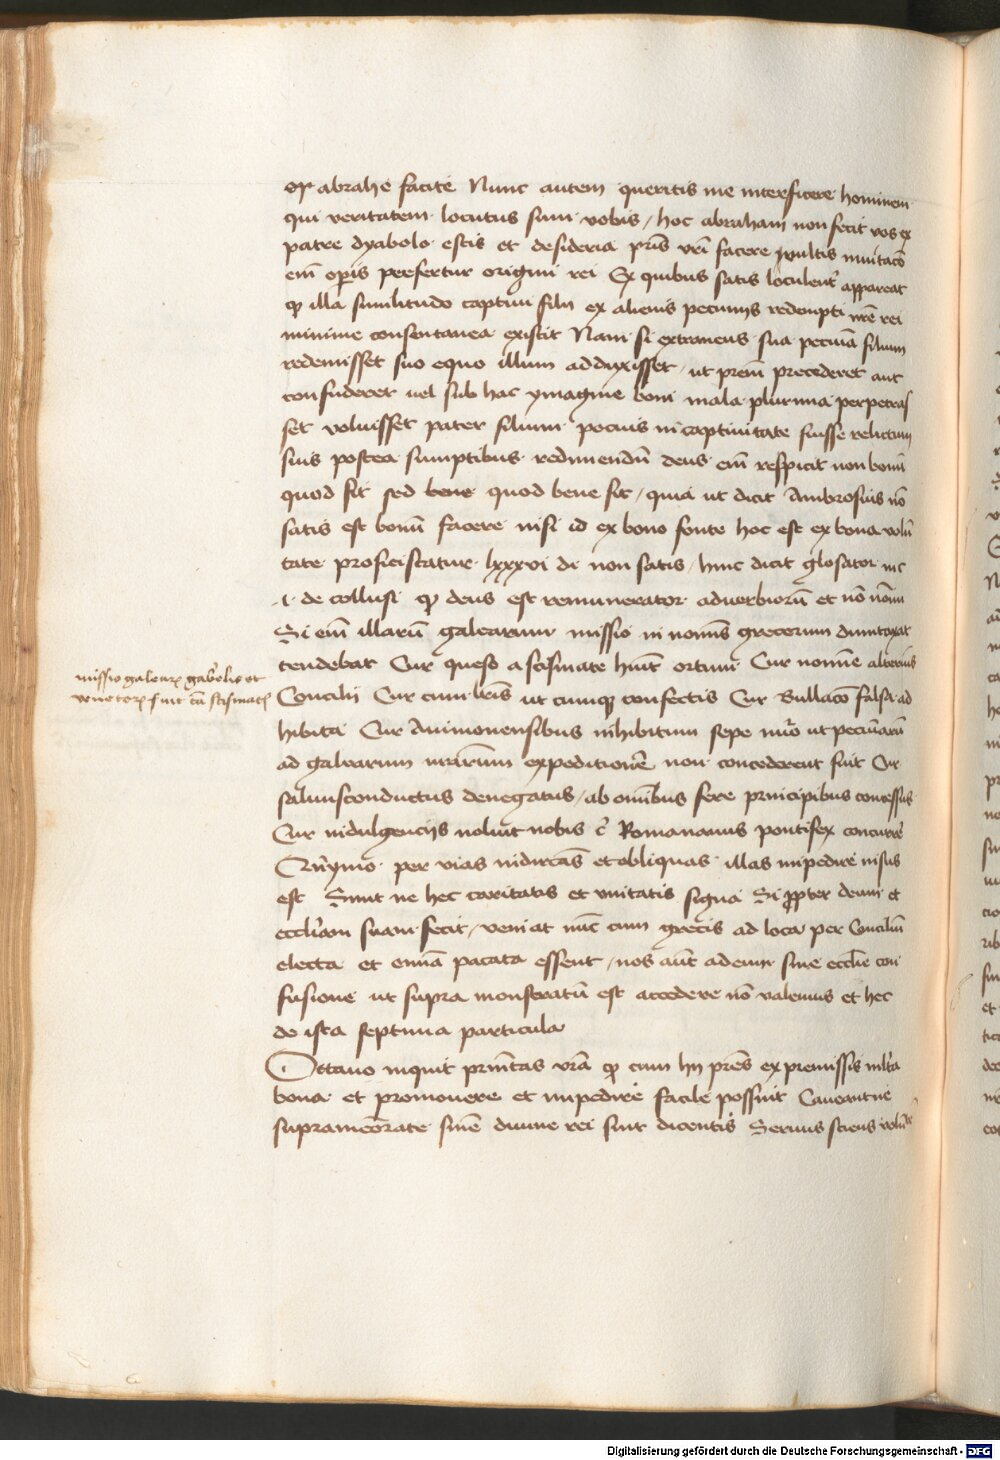 op abrahe facite Nunc autem queritis me interficere hominem
qui veritatem locutus sum vobis / hoc abraham non fecit vos ex
patre dyabolo estis et desideria pr̄is vr̄i facere vultis
em̄ op̄is prefertur origini rei Ex quibus satis loculent̄ appareat
ꝙ illa similitudo captivi filii ex alienis pecuniis redempti nr̄e rei
minime consentanea existit Nam si extraneus sua pecuīa filium
redemisset suo equo illum adduxisset / ut prem̄ precederet aut
confunderet uel sub hac ymagine boni mala plurima perpetras
set voluisset pater filium pocius in captivitate fuisse relictum
suis postea sumptibus redimendū deus em̄ respicit non bonū
quod fit sed bene quod bene fit / quia ut dicit Ambrosius nō
satis est bonū facere nisi id ex bono fonte hoc est ex bona volū
tate proficiscatur lxxxvi di non satis / hinc dicit glosator in c
.i. de collusi ꝙ deus est remunerator adverbiorū et nō noīm
Si em̄ illarū galearum missio in nomīs grecorum dumtaxat
tendebat Cur queso a scismate hīut ortum Cur nomine alterius
Concilii Cur cum lr̄is ut cumqꝫ confectis Cur Bullacō falsa ad
hibita Cur Avinionensibus inhibitum sepe ut pecuniarū
ad galearum nr̄arum expeditionē non concederent fuit Cur
salvusconductus denegatus / ab omībus fere principibus concessus
Cur indulgencijs noluit nobis c̄ Romananus pontifex concurrere
Qn̄ymo per vias indirectas et obliquas illas impedire nisus
est Sunt ne hec caritatis et unitatis signa Si ꝓpter deum et
eccl̄iam suam fecit / veniat nūc cum grecis ad loca per Conciliū
electa et omīa pacata essent / nos aūt ad eum sine eccl̄ie con
fusione ut supra monstratū est accedere nō valemus et hec
de ista septima particula
Octavo inquit prn̄itas vr̄a ꝙ cum hij pr̄es ex premissis ml̄ta
bona et promovere et impedire facile possint Caveant ne
suprameōrate sn̄ie divine rei sint dicentis Servus sciens volūtē
missio galearꝝ gab̄elis et
venetorꝝ fuit cā scismatꝭ
Digitalisierung gefördert durch die Deutsche Forschungsgemeinschaft - DFG